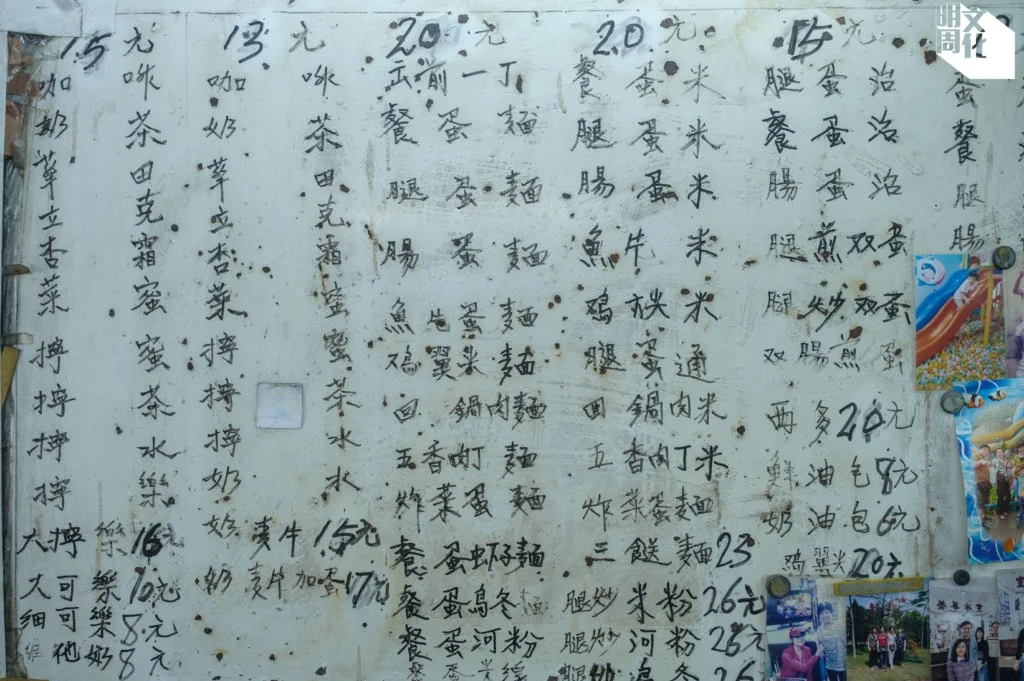 明周文化
15元
咖啡
奶茶
華田
立克
杏霜
菜蜜
檸蜜
檸茶
檸水
檸樂
大檸樂16元
大可樂10元
細可樂8元
維他奶8元
13元
咖啡
奶茶
華田
立克
杏霜
菜蜜
檸蜜
檸茶
檸水
奶水
奶麦片15元
奶麦片加蛋17元
20元
正前一丁
餐蛋麵
腿蛋麵
腸蛋麵
魚片蛋麵
鸡翼米麵
回鍋肉麵
五香肉丁麵
炸菜蛋麵
餐蛋虾仔麵
餐蛋烏冬麵
餐蛋河粉
20元
餐蛋米
腿蛋米
腸蛋米
魚片米
鸡米
腿蛋通
回鍋肉米
五香肉丁米
炸菜蛋麵
三餸麵23
腿炒米粉26元
腿炒河粉26元
15元
腿蛋治
餐蛋治
腸蛋治
腿煎双蛋
腿炒双蛋
双腸煎蛋
西多20元
鮮油包8元
奶油包6元
鸡翼尖20元
蛋
餐
腿
腸